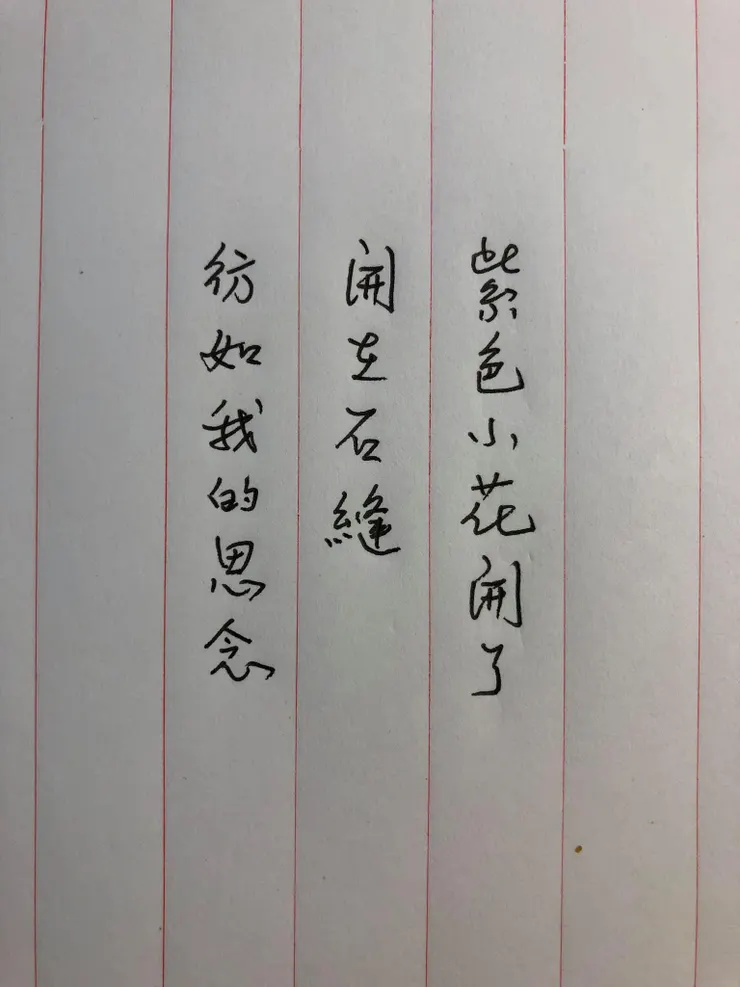 紫色小花開了
開在石縫
彷如我的思念